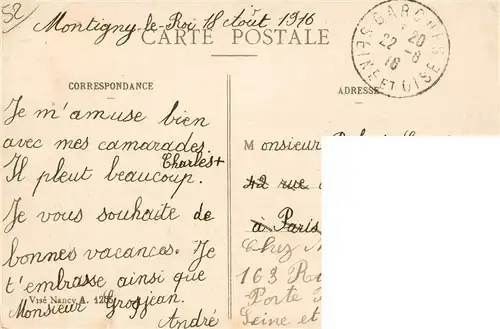 52
Montigny-le-Roi 18 Août 1916
CARTE POSTALE
GARCHES
20
22-8
16
SEINE ET OISE
CORRESPONDANCE
Je m'amuse bien
avec mes camarades.
Charles +
Il pleut beaucoup.
Je vous souhaite de
bonnes vacances. Je
t'embrasse ainsi que
Visé Nancy A.
Monsieur Grosjean.
André
ADRESSE
Monsieur
42 rue
à Paris
Chez
163
Porte
Seine et